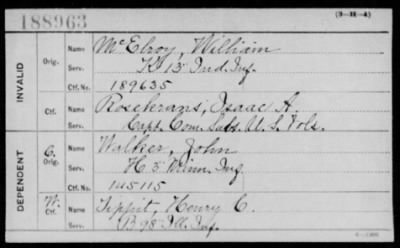 188963
(3-H-4)
INVALID
Orig.
Name McElroy, William
Serv. K 15 Ind. Inf.
Ctf. No. 189635
Ctf.
Name Rosekrans, Isaac A.
Serv. Capt. Com. Subs. U.S. Vols.
DEPENDENT
C. Orig.
Name Walker, John
Serv. H 5 Minn. Inf.
Ctf. No. 145115
W. Ctf.
Name Tippit, Henry C.
Serv. B 98 Ill. Inf.